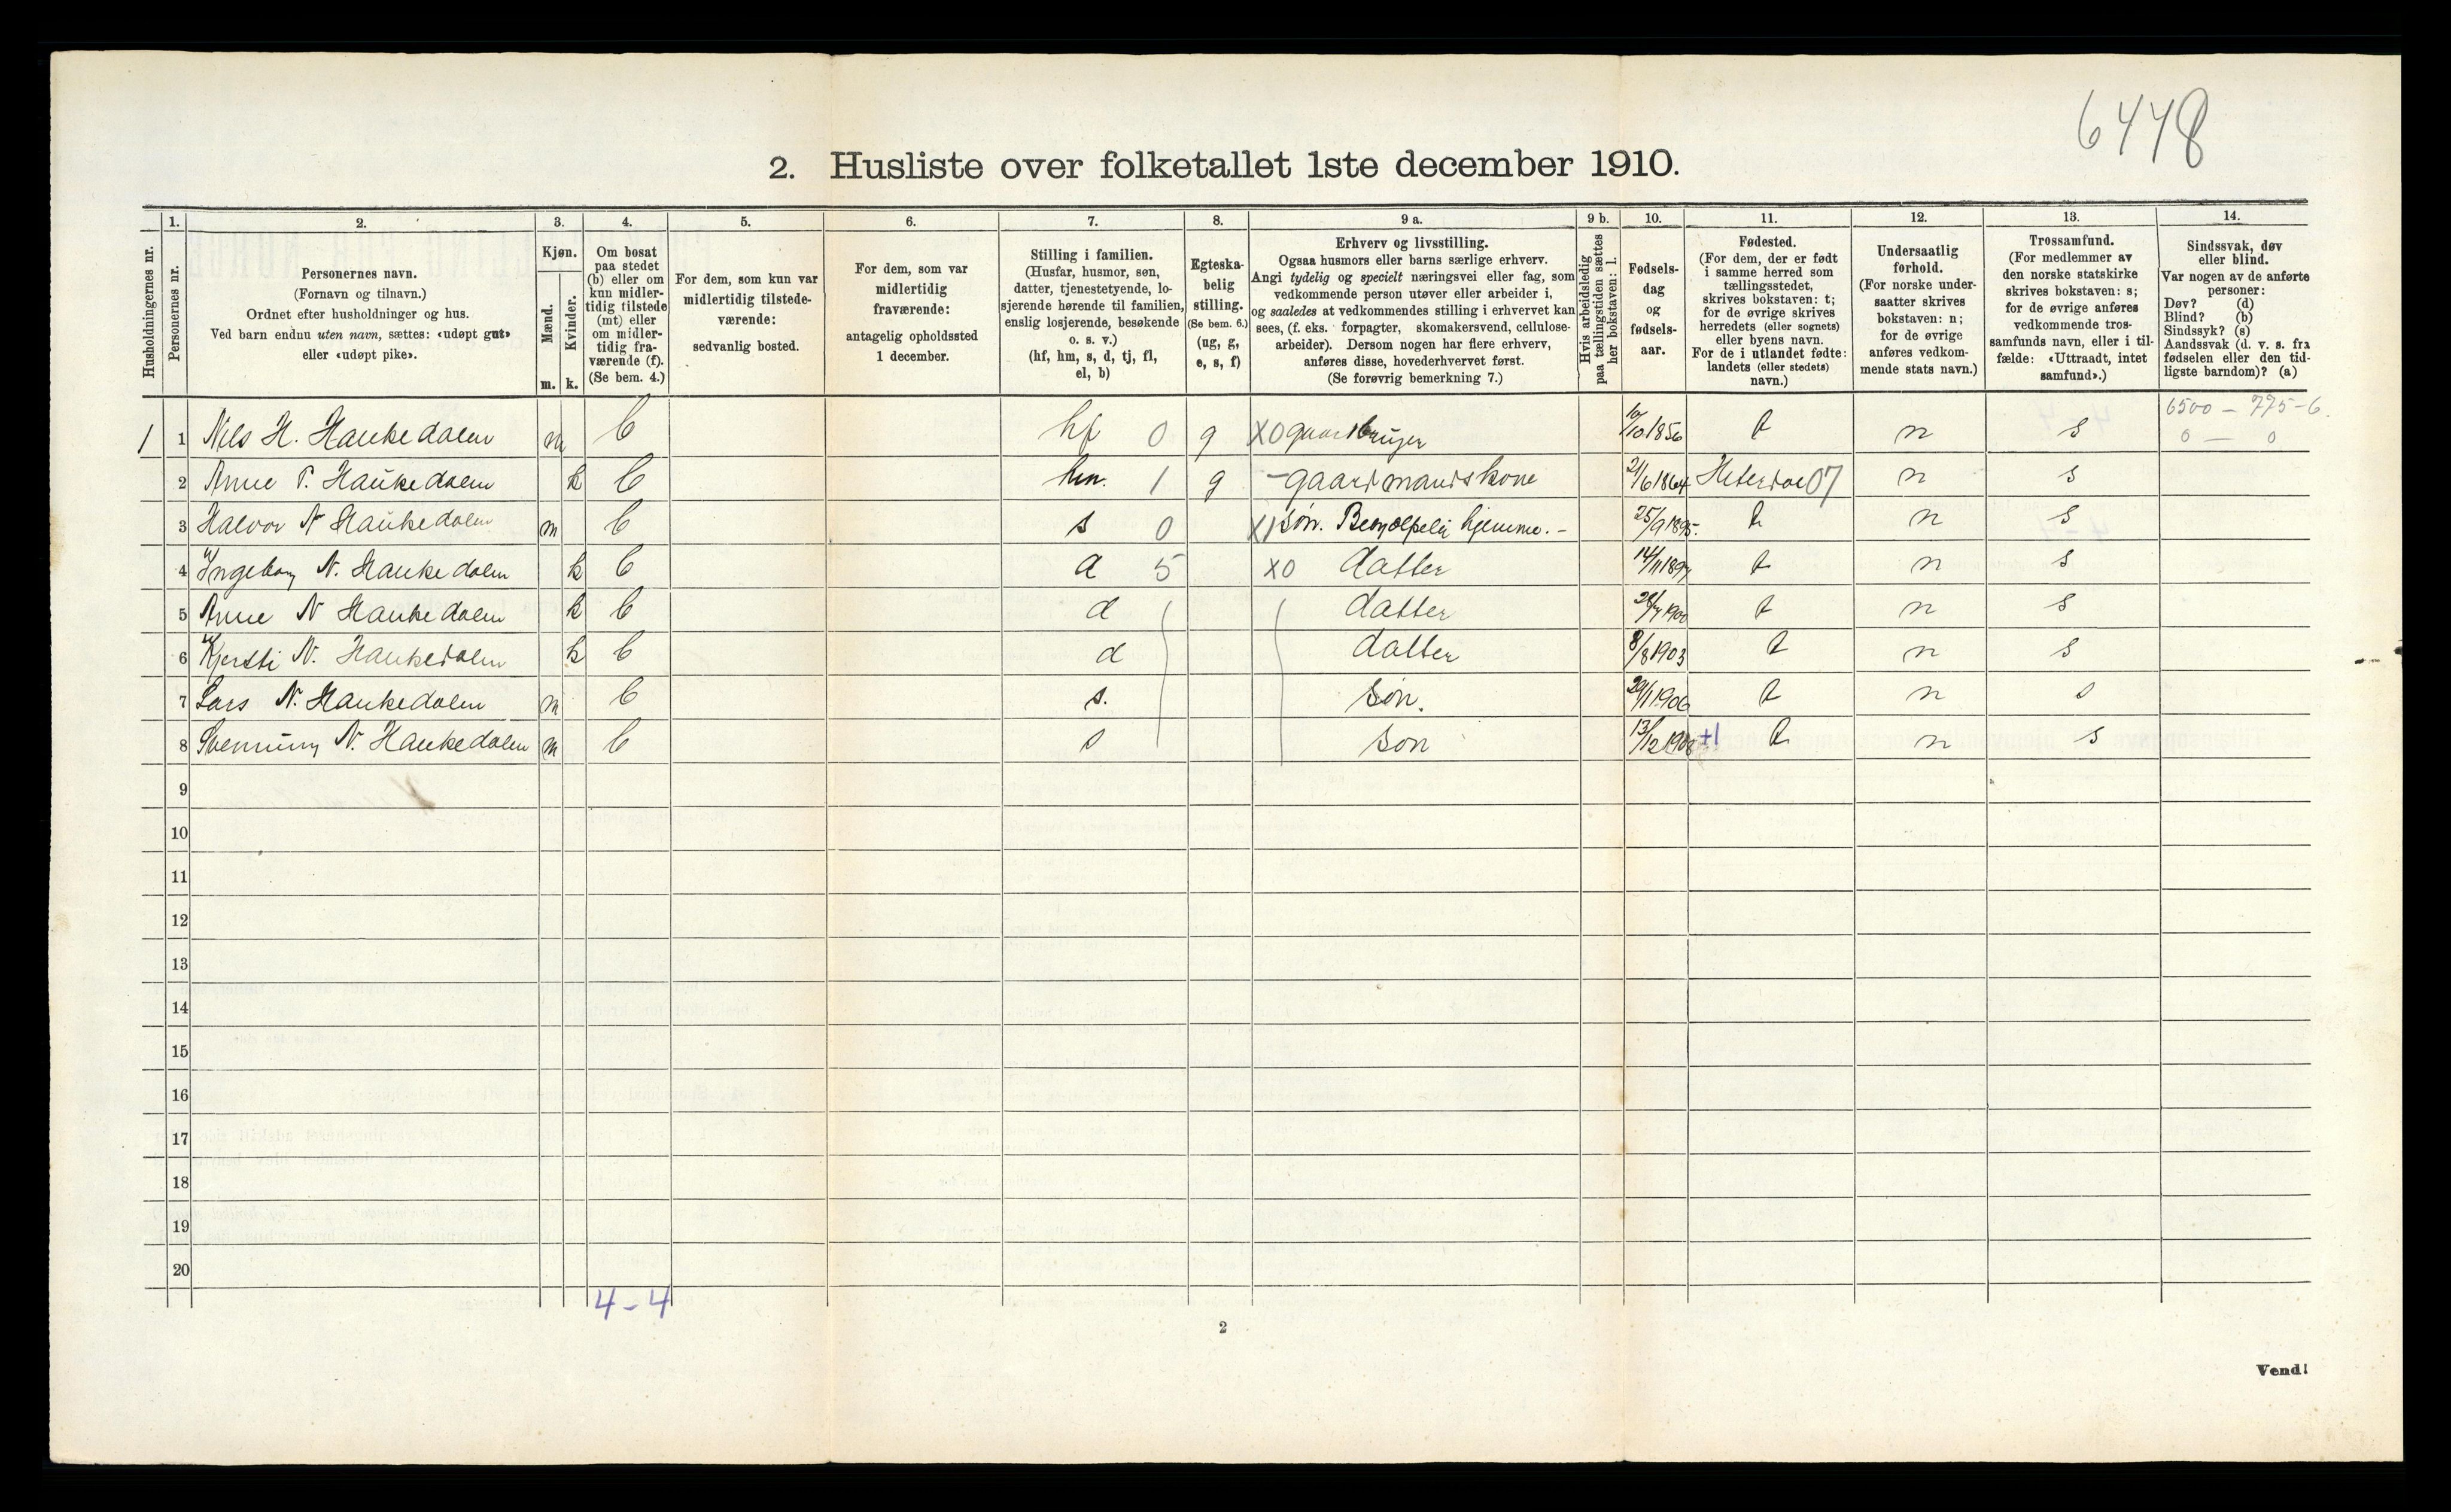 6448
2. Husliste over folketallet 1ste december 1910.
Husholdningernes nr.
1.
Personernes nr.
2.
Personernes navn.
(Fornavn og tilnavn.)
Ordnet efter husholdninger og hus.
Ved barn endnu uten navn, sættes: «udøpt gut»
eller «udøpt pike».
3.
Kjøn.
Mænd.
Kvinder.
m. k.
4.
Om bosat
paa stedet
(b) eller om
kun midler-
tidig tilstede
(mt) eller
om midler-
tidig fra-
værende (f).
(Se bem. 4.)
5.
For dem, som kun var
midlertidig tilstede-
værende:
sedvanlig bosted.
6.
For dem, som var
midlertidig
fraværende:
antagelig opholdssted
1 december.
7.
Stilling i familien.
(Husfar, husmor, søn,
datter, tjenestetyende, lo-
sjerende hørende til familien,
enslig losjerende, besøkende
o. s. v.)
(hf, hm, s, d, tj, fl,
el, b)
8.
Egteska-
belig
stilling.
(Se bem. 6.)
(ug, g,
e, s, f)
9 a.
Erhverv og livsstilling.
Ogsaa husmors eller barns særlige erhverv.
Angi tydelig og specielt næringsvei eller fag, som
vedkommende person utøver eller arbeider i,
og saaledes at vedkommendes stilling i erhvervet kan
sees, (f. eks. forpagter, skomakersvend, cellulose-
arbeider). Dersom nogen har flere erhverv,
anføres disse, hovederhvervet først.
(Se forøvrig bemerkning 7.)
9 b.
Hvis arbeidsledig
paa tællingstiden sættes
her bokstaven: l.
10.
Fødsels-
dag
og
fødsels-
aar.
11.
Fødested.
(For dem, der er født
i samme herred som
tællingsstedet,
skrives bokstaven: t;
for de øvrige skrives
herredets (eller sognets)
eller byens navn.
For de i utlandet fødte:
landets (eller stedets)
navn.)
12.
Undersaatlig
forhold.
(For norske under-
saatter skrives
bokstaven: n;
for de øvrige
anføres vedkom-
mende stats navn.)
13.
Trossamfund.
(For medlemmer av
den norske statskirke
skrives bokstaven: s;
for de øvrige anføres
vedkommende tros-
samfunds navn, eller i til-
fælde: «Uttraadt, intet
samfund».)
14.
Sindssvak, døv
eller blind.
Var nogen av de anførte
personer:
Døv? (d)
Blind? (b)
Sindssyk? (s)
Aandssvak (d. v. s. fra
fødselen eller den tid-
ligste barndom)? (a)
6500 – 775-6.
1 1 Nils H. Haukedalen m b hf 0 g X0 gaardbruger 10/10 1856 t n s 0 — 0
2 Anne P. Haukedalen k b hm. 1 g – gaardmandskone 21/6 1864 07 n s
3 Halvor N Haukedalen m b s 0 X1 søn. hjemme. – 25/9 1895. t n s
4 Ingeborg N. Haukedalen k b d 5 X0 datter 14/11 1897 t n s
5 Anne N Haukedalen k b d datter 1900 t n s
6 Kjersti N. Haukedalen k b d datter 8/8 1903 t n s
7 Lars N. Haukedalen m b s. søn. 29/1 1906 t n s
8 Svenning N. Haukedalen m b s søn 13/12 1908 +1 t n s
9
10
11
12
13
14
15
16
17
18
19
20
4 – 4
2
Vend!